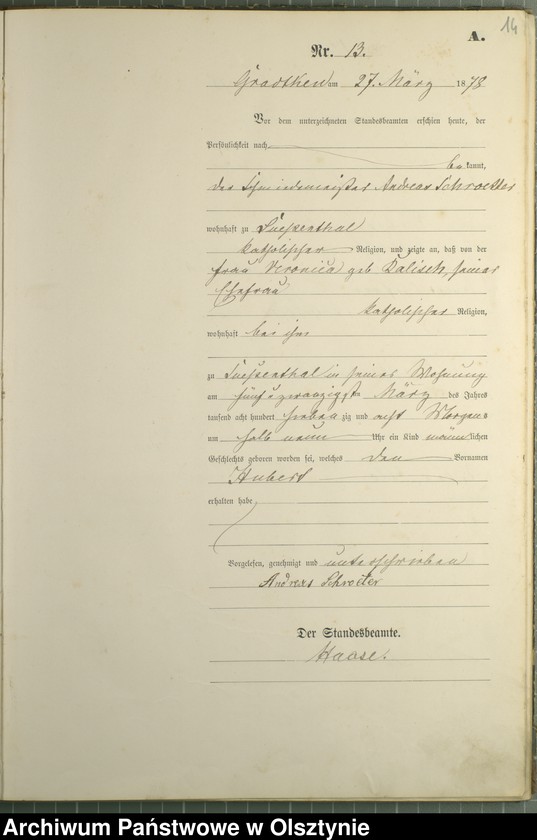 14
A.
Nr. 13.
Gradtken am 27. März 1878
Vor dem unterzeichneten Standesbeamten erschien heute, der
Persönlichkeit nach
bekannt,
der Schmiedemeister Andreas Schroetter
wohnhaft zu
katholischer Religion, und zeigte an, daß von der
Frau Veronica geb Kalisch, seiner
Ehefrau
katholischer Religion,
wohnhaft bei ihm
zu in seiner Wohnung
am fünf u zwanzigsten März des Jahres
tausend acht hundert siebenzig und acht Morgens
um halb neun Uhr ein Kind männlichen
Geschlechts geboren worden sei, welches den Vornamen
Hubert
erhalten habe
Vorgelesen, genehmigt und unterschrieben
Andreas Schroeter
Der Standesbeamte.
Haase.
Archiwum Państwowe w Olsztynie